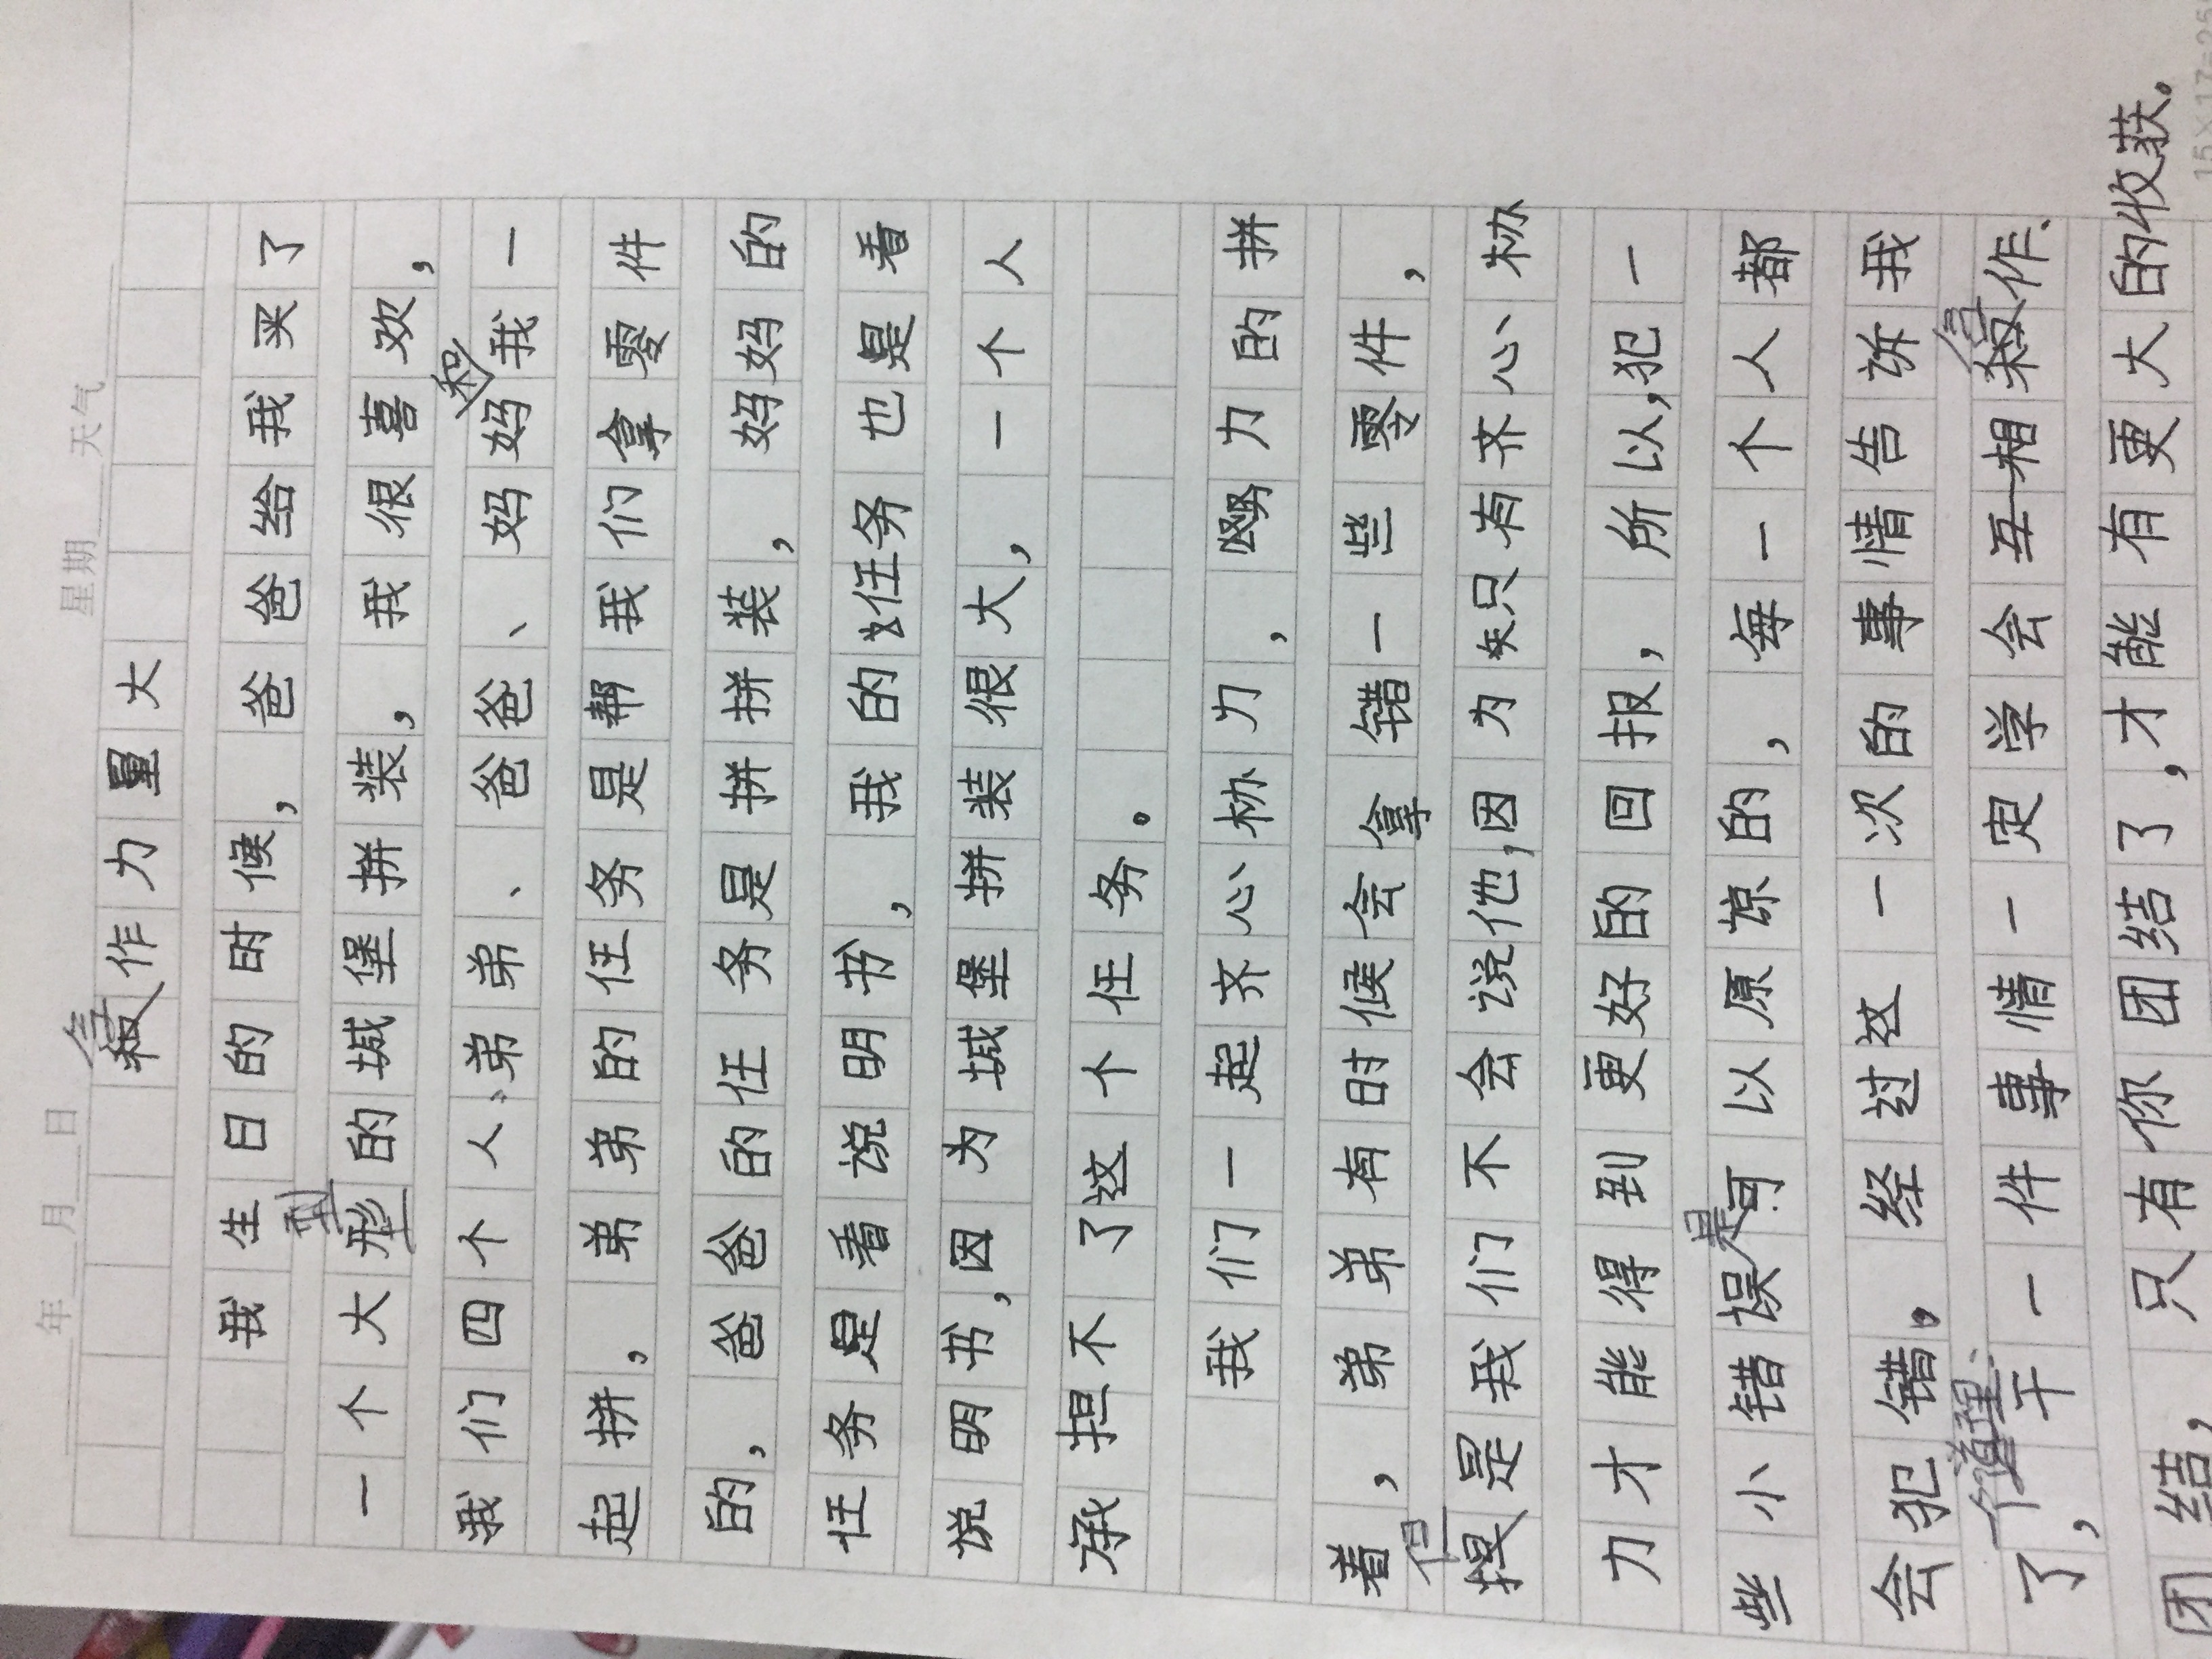 年 月 日 星期 天气
合作力量大
我生日的时候，爸爸给我买了
一个大型的城堡拼装，我很喜欢，
我们四个人，弟弟、爸爸、妈妈和我一
起拼，弟弟的任务是帮我们拿零件
的，爸爸的任务是拼拼装，妈妈的
任务是看说明书，我的任务也是看
说明书，因为城堡拼装很大，一个人
承担不了这个任务。
我们一起齐心协力，努力的拼
着，弟弟有时候会拿错一些零件，
但是我们不会说他，因为只有齐心协
力才能得到更好的回报，所以，犯一
些小错误是可以原谅的，每一个人都
会犯错。经过这一次的事情告诉我
了，一个道理、干一件事情一定学会互相合作、
团结，只有你团结了，才能有更大的收获。
15×17=255